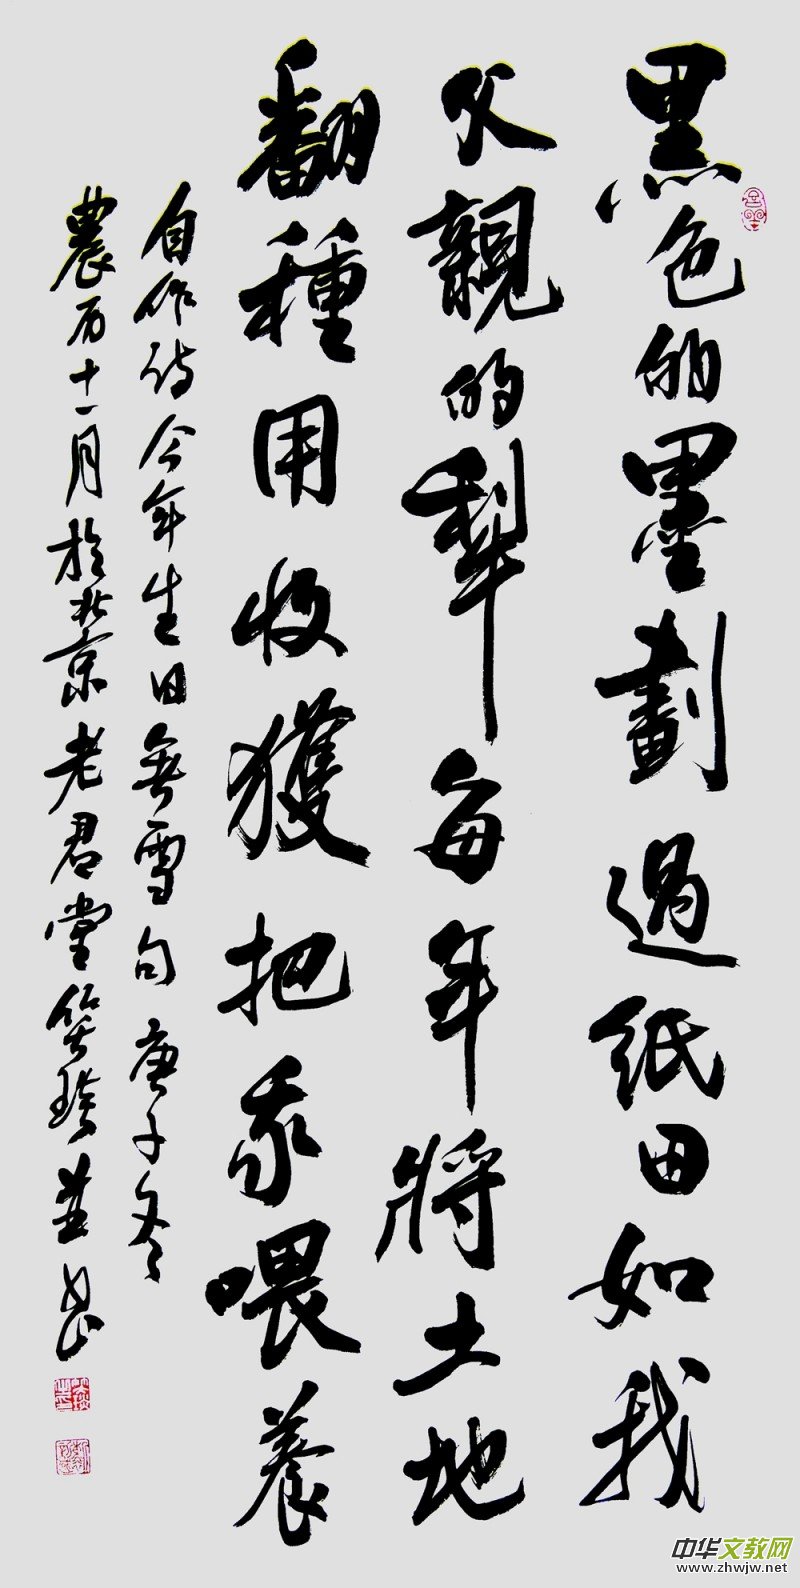 黑色的墨劃過紙田如我
父親的犁每年將土地
翻種用收獲把我喂養
自作诗今年生日無雪句庚子冬
農历十一月於北京老君堂並书
中华文教网
www.zhwjw.net